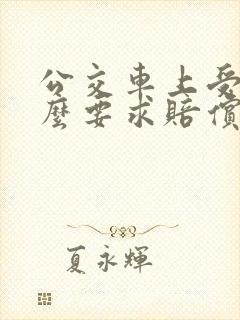 公交車上受
麼要求賠償
夏永輝